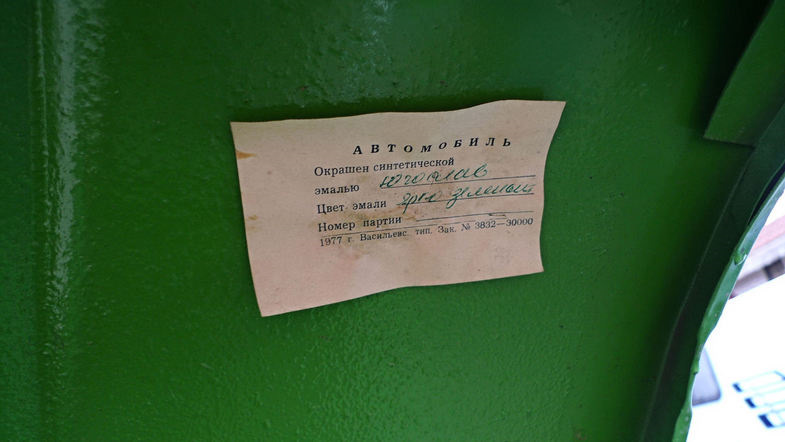 АВТОМОБИЛЬ
Окрашен синтетической
эмалью югослав
Цвет эмали ярко зеленый
Номер партии
1977 г. Васильевс. тип. Зак. № 3832—30000